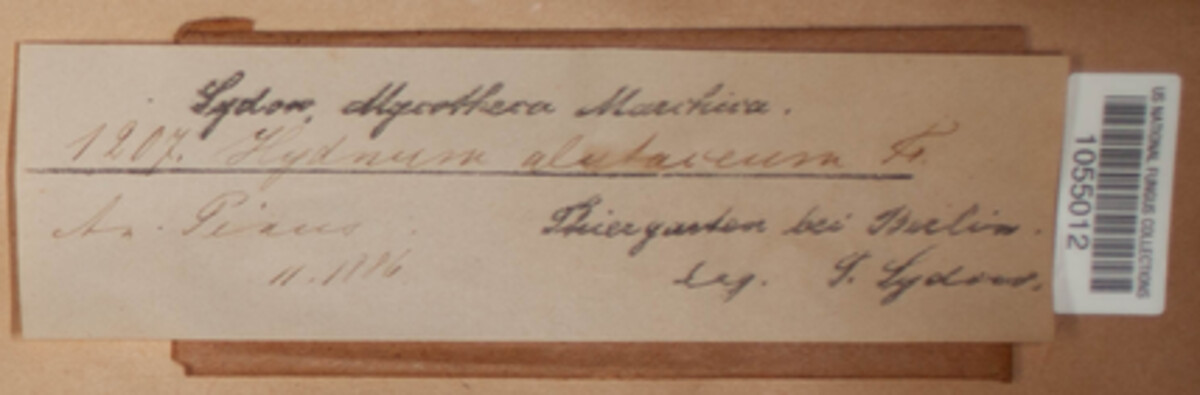 Sydow, Mycotheca Marchica.
1207. Hydnum alutaceum Fr.
An Pinus.
11.1886.
Thiergarten bei Berlin.
leg. P. Sydow.
US NATIONAL FUNGUS COLLECTIONS
1055012